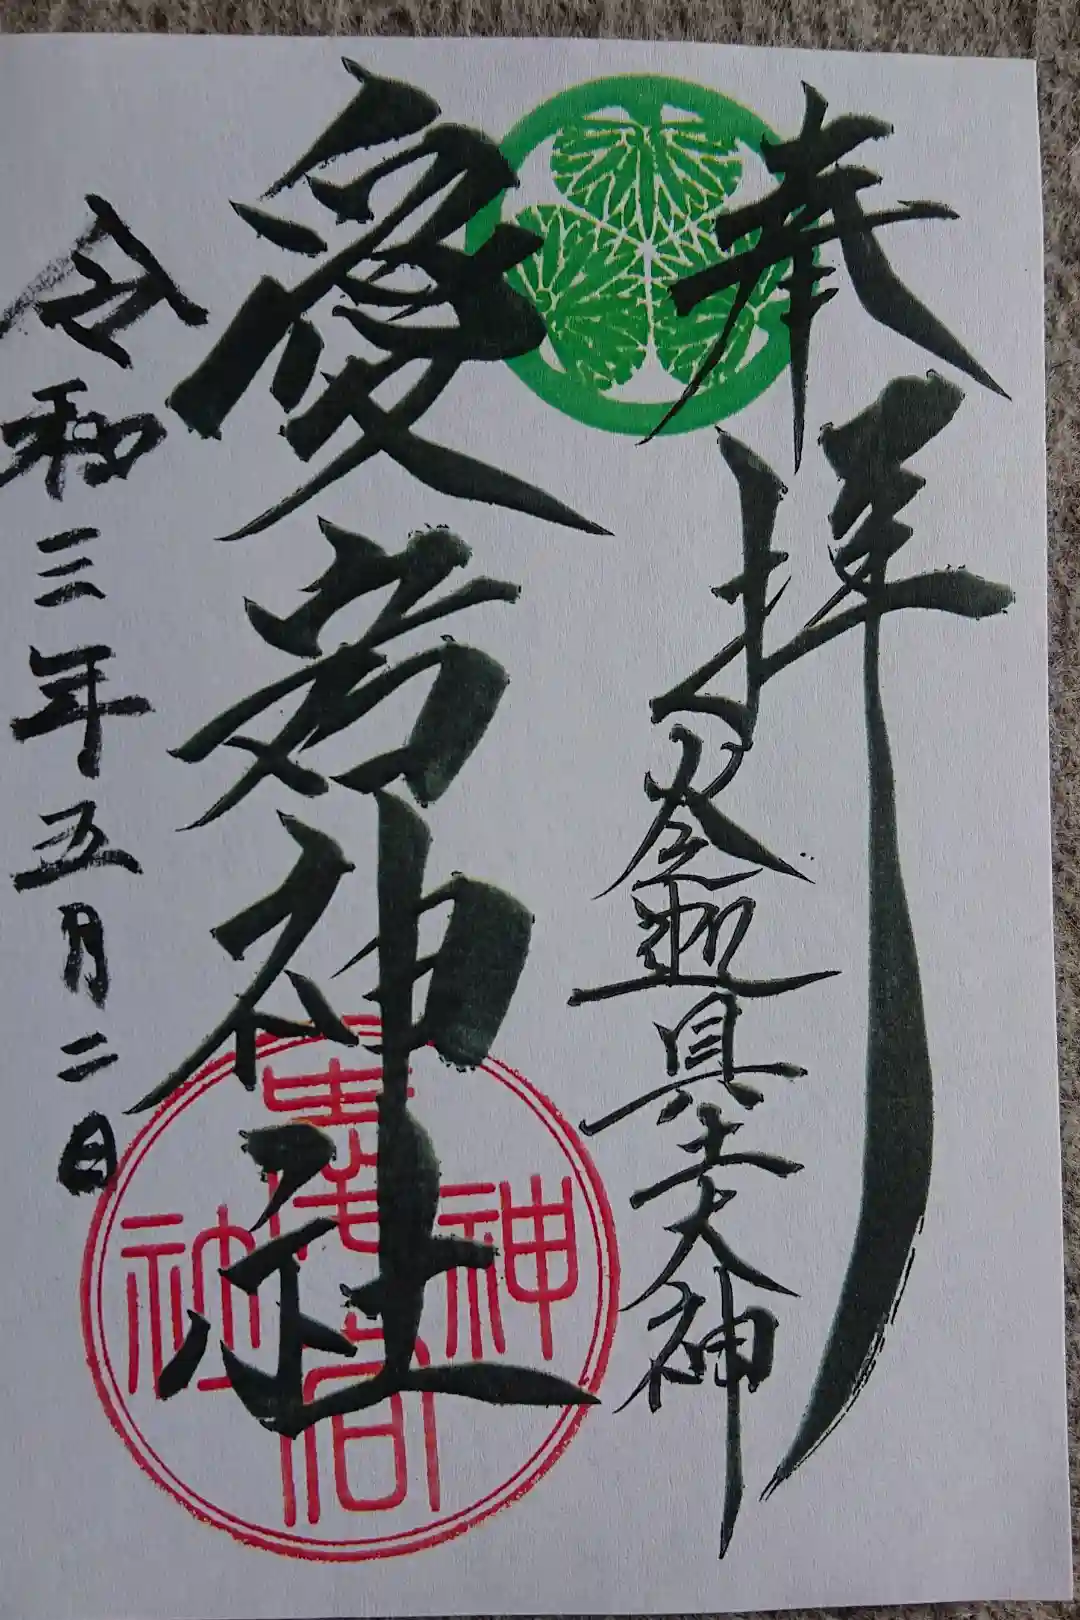 奉拝
火之迦具土大神
愛宕神社
令和三年五月二日
愛宕神社